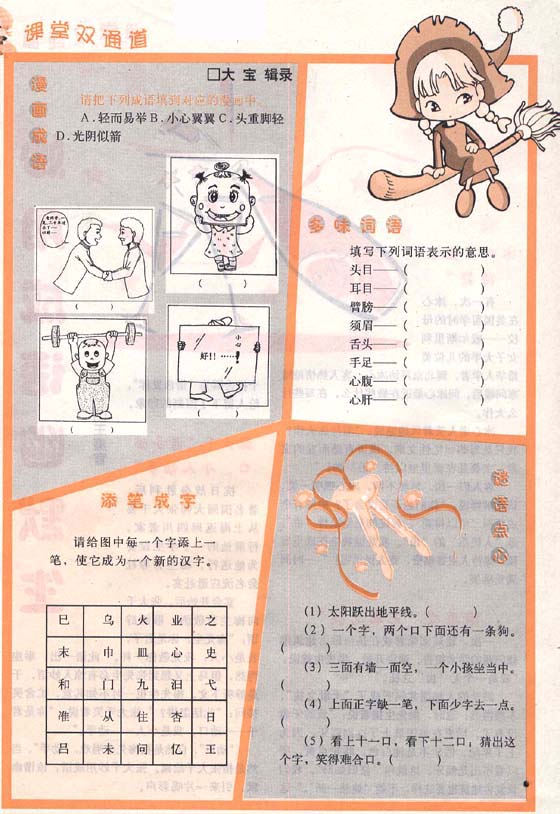 课堂双通道
□大 宝 辑录
漫画成语
请把下列成语填到对应的漫画中。
A.轻而易举 B.小心翼翼 C.头重脚轻
D.光阴似箭
( )
( )
好!! ……
( )
( )
多味词语
填写下列词语表示的意思。
头目——( )
耳目——( )
臂膀——( )
须眉——( )
舌头——( )
手足——( )
心腹——( )
心肝——( )
添笔成字
请给图中每一个字添上一
笔，使它成为一个新的汉字。
巳 乌 火 业 之
末 巾 皿 心 史
和 门 九 汩 弋
准 从 住 杏 日
吕 未 问 忆 王
谜语点心
(1) 太阳跃出地平线。( )
(2) 一个字，两个口下面还有一条狗。
( )
(3) 三面有墙一面空，一个小孩坐当中。
( )
(4) 上面正字缺一笔，下面少字去一点。
( )
(5) 看上十一口，看下十二口；猜出这
个字，笑得难合口。( )